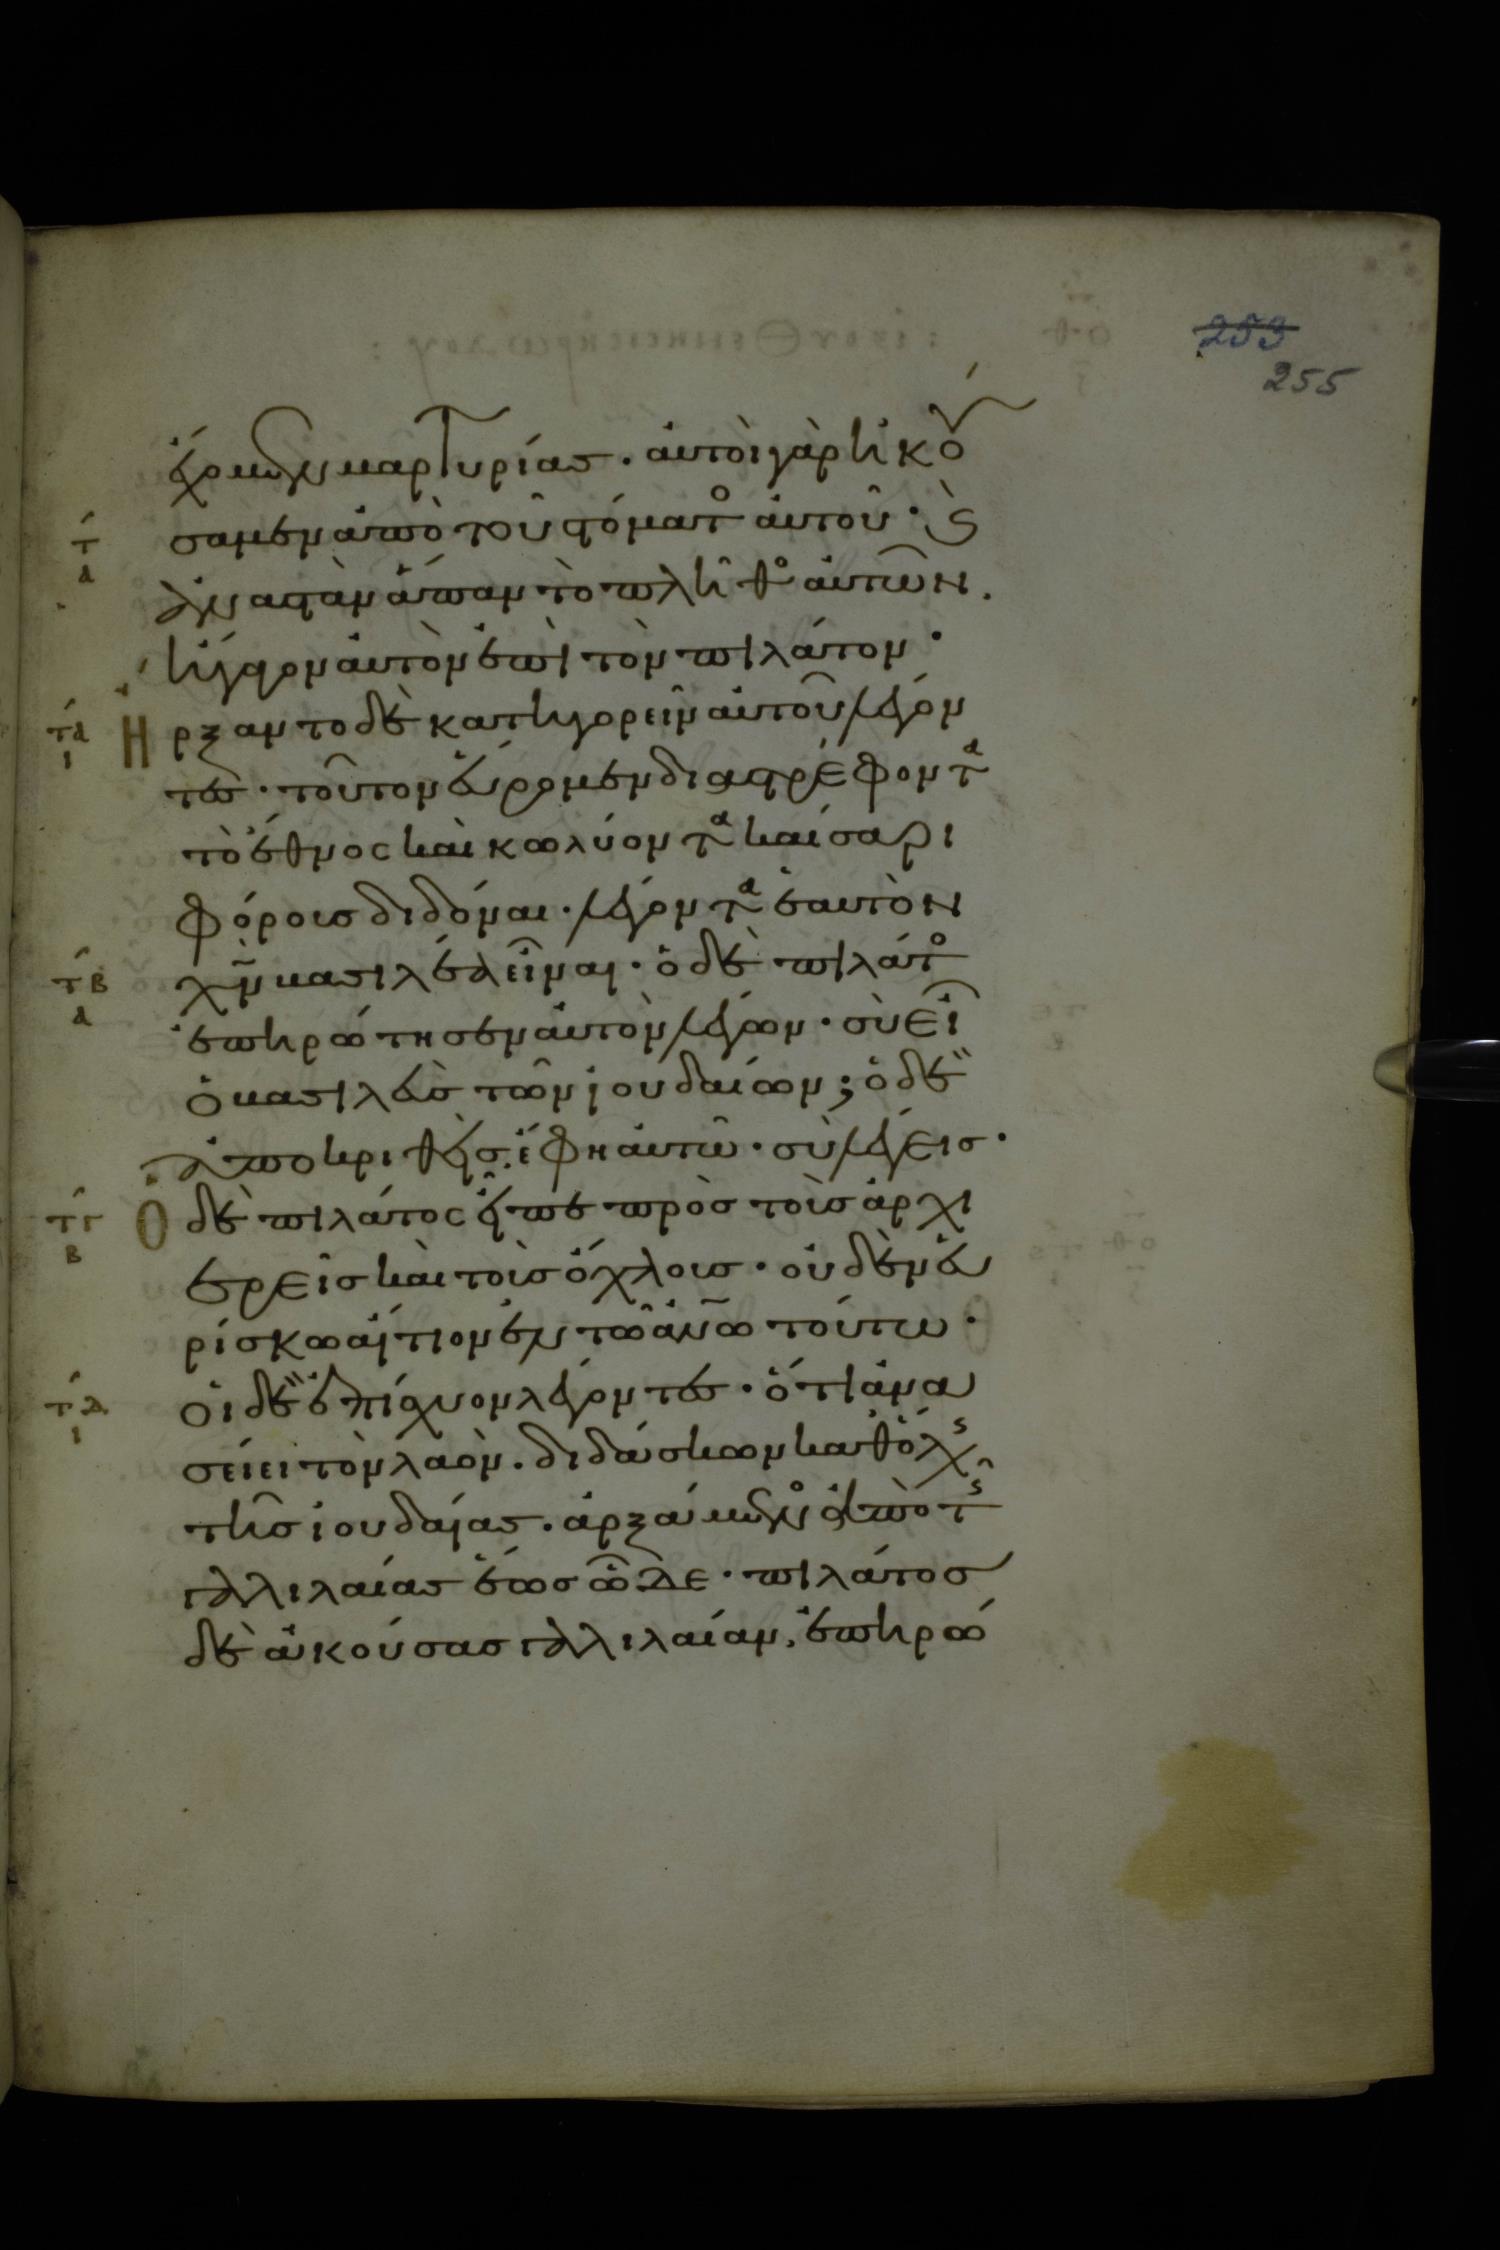 253
255
ἔχομεν μαρτυρίας · αὐτοὶ γὰρ ἠκού
σαμεν ἀπὸ τοῦ στόματο αὐτοῦ · ϗ
τ
α
ἀναστὰν ἅπαν τὸ πλῆθο αὐτῶν .
ἤγαγον αὐτὸν ἐπὶ τὸν πιλάτον ·
τα
ι
Ηρξαντο δὲ κατηγορεῖν αὐτοῦ λέγον
τες · τοῦτον εὕρομεν διαστρέφοντα
τὸ ἔθνος καὶ κωλύοντα καίσαρι
φόρους διδόναι · λέγοντα ἑαυτὸν
τβ
α
χν βασιλέα εἶναι · ὁ δὲ πιλάτο
ἐπηρώτησεν αὐτὸν λέγων · σὺ εἶ
ὁ βασιλεὺς τῶν ἰουδαίων ; ὁ δὲ
ἀποκριθεὶς ἔφη αὐτῶ · σὺ λέγεις ·
τγ
β
Ο δὲ πιλάτος εἶπε πρὸς τοὺς ἀρχι
ερεῖς καὶ τοὺς ὄχλους · οὐδὲν εὑ
ρίσκω αἴτιον ἐν τῶ ἀνω τούτω ·
τδ
ι
οἱ δὲ ἐπίσχυον λέγοντες · ὅτι ἀνα
σείει τὸν λαὸν . διδάσκων καθ ὅλης
τῆς ἰουδαίας . ἀρξάμενο ἀπὸ τῆς
γαλιλαίας ἕως ὧδε · πιλάτος
δὲ ἀκούσας γαλιλαίαν , ἐπηρώ